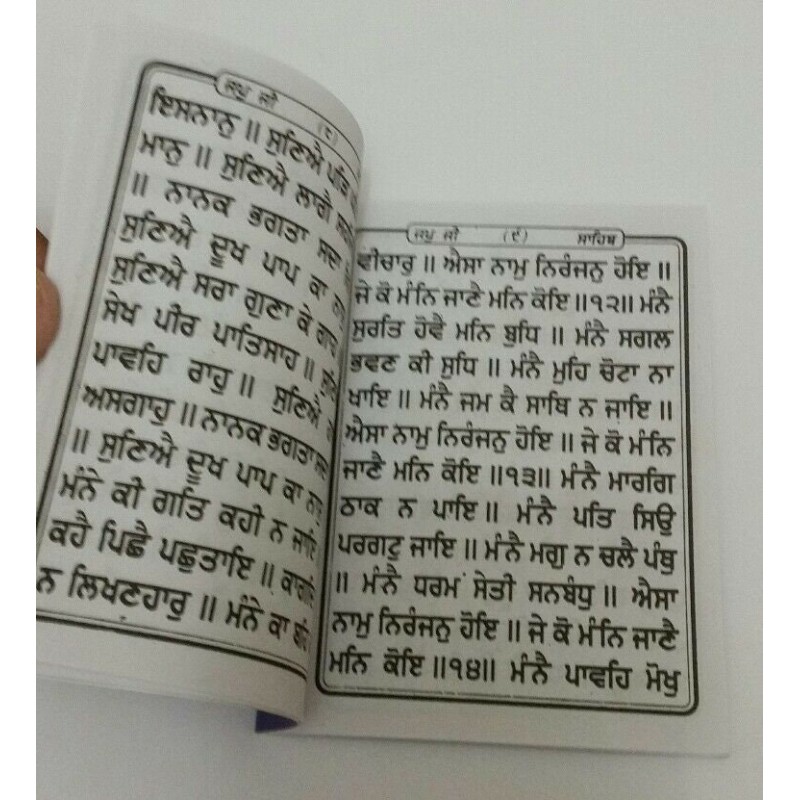 ਜਪੁ ਜੀ (੮)
ਇਸਨਾਨੁ ॥ ਸੁਣਿਐ ਪੜਿ
ਮਾਨੁ ॥ ਸੁਣਿਐ ਲਾਗੈ
॥ ਨਾਨਕ ਭਗਤਾ ਸਦਾ
ਸੁਣਿਐ ਦੂਖ ਪਾਪ ਕਾ
ਸੁਣਿਐ ਸਰਾ ਗੁਣਾ ਕੇ ਗਾਹ
ਸੇਖ ਪੀਰ ਪਾਤਿਸਾਹ ॥
ਪਾਵਹਿ ਰਾਹੁ ॥ ਸੁਣਿਐ
ਅਸਗਾਹੁ ॥ ਨਾਨਕ ਭਗਤਾ
॥ ਸੁਣਿਐ ਦੂਖ ਪਾਪ ਕਾ
ਮੰਨੇ ਕੀ ਗਤਿ ਕਹੀ ਨ ਜਾਇ
ਕਹੈ ਪਿਛੈ ਪਛੁਤਾਇ ॥ ਕਾਗਦਿ
ਨ ਲਿਖਣਹਾਰੁ ॥ ਮੰਨੇ ਕਾ
ਜਪੁ ਜੀ (੯) ਸਾਹਿਬ
ਵੀਚਾਰੁ ॥ ਐਸਾ ਨਾਮੁ ਨਿਰੰਜਨੁ ਹੋਇ ॥
ਜੇ ਕੋ ਮੰਨਿ ਜਾਣੈ ਮਨਿ ਕੋਇ ॥੧੨॥ ਮੰਨੈ
ਸੁਰਤਿ ਹੋਵੈ ਮਨਿ ਬੁਧਿ ॥ ਮੰਨੈ ਸਗਲ
ਭਵਣ ਕੀ ਸੁਧਿ ॥ ਮੰਨੈ ਮੁਹਿ ਚੋਟਾ ਨਾ
ਖਾਇ ॥ ਮੰਨੈ ਜਮ ਕੈ ਸਾਥਿ ਨ ਜਾਇ ॥
ਐਸਾ ਨਾਮੁ ਨਿਰੰਜਨੁ ਹੋਇ ॥ ਜੇ ਕੋ ਮੰਨਿ
ਜਾਣੈ ਮਨਿ ਕੋਇ ॥੧੩॥ ਮੰਨੈ ਮਾਰਗਿ
ਠਾਕ ਨ ਪਾਇ ॥ ਮੰਨੈ ਪਤਿ ਸਿਉ
ਪਰਗਟੁ ਜਾਇ ॥ ਮੰਨੈ ਮਗੁ ਨ ਚਲੈ ਪੰਥੁ
॥ ਮੰਨੈ ਧਰਮ ਸੇਤੀ ਸਨਬੰਧੁ ॥ ਐਸਾ
ਨਾਮੁ ਨਿਰੰਜਨੁ ਹੋਇ ॥ ਜੇ ਕੋ ਮੰਨਿ ਜਾਣੈ
ਮਨਿ ਕੋਇ ॥੧੪॥ ਮੰਨੈ ਪਾਵਹਿ ਮੋਖੁ